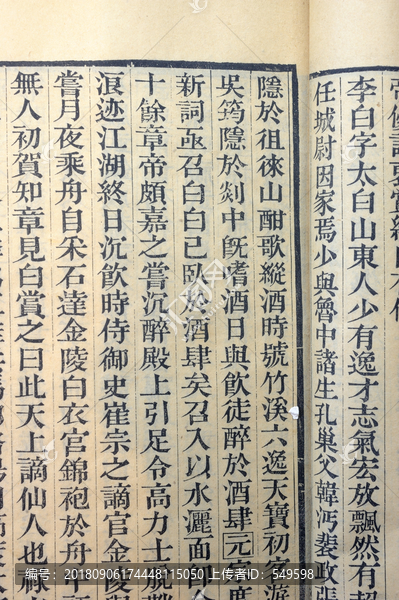 李白字太白山東人少有逸才志氣宏放飄然有超
任城尉因家焉少與魯中諸生孔巢父韓沔裴政張
隱於徂徠山酣歌縱酒時號竹溪六逸天寶初客游
吳筠隱於剡中旣嗜酒日與飲徒醉於酒肆元宗度
新詞亟召白白已臥於酒肆矣召入以水灑面卽
十餘章帝頗嘉之嘗沉醉殿上引足令高力士
浪迹江湖終日沉飲時侍御史崔宗之謫官金陵
嘗月夜乘舟自采石達金陵白衣宮錦袍於舟
無人初賀知章見白賞之曰此天上謫仙人也祿
编号：20180906174448115050 上传者ID：549598